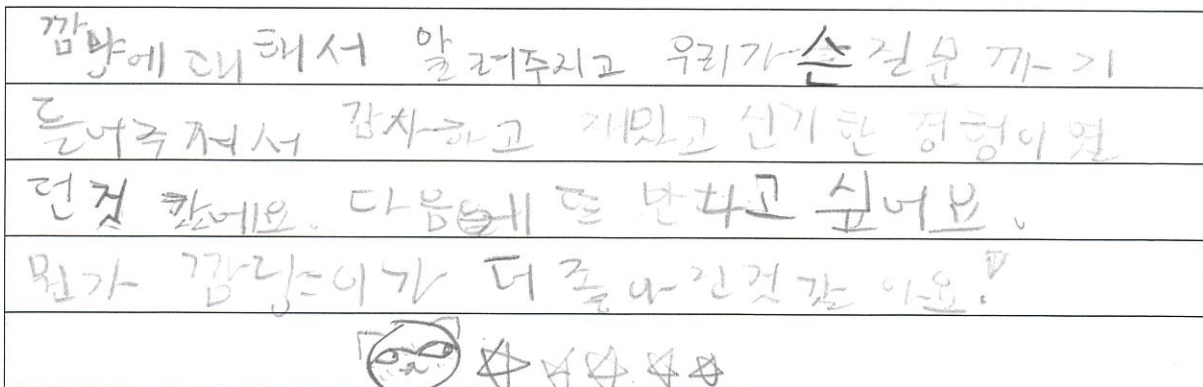 깜냥에 대해서 알려주시고 우리가 쓴 질문 까지
들어주셔서 감사하고 재밌고 신기한 경험이였
던것 같에요. 다음에 또 만나고 싶어요.
뭔가 깜냥이가 더 좋아진것 같아요!